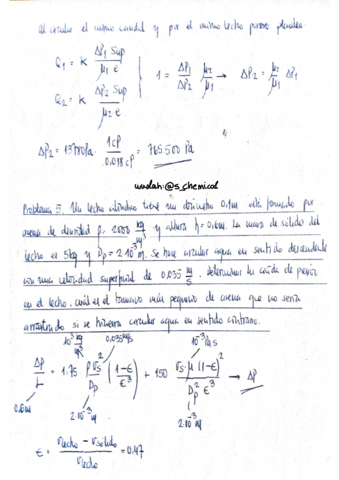 Al circular el mismo caudal y por el mismo lecho poroso
Q₁ = K ΔP₁ Sup / μ₁ e
Q₂ = K ΔP₂ Sup / μ₂ e
1 = ΔP₁/ΔP₂ · μ₂/μ₁ → ΔP₂ = μ₂/μ₁ ΔP₁
ΔP₂ = Pa · 1cP / 0.018 cP = 765.500 Pa
wuolah:@s_chemical
Problema 5. Un lecho cilíndrico tiene un diámetro 0,1m está formado por
arena de densidad ρ. 2000 kg/m³ y altura h = 0,6m. La masa de sólido del
lecho es 5kg y Dp = 2·10⁻³ m. Se hace circular agua en sentido descendente
con una velocidad superficial de 0,035 m/s. determinar la caída de presión
en el lecho. cuál es el tamaño más pequeño de arena que no sería
arrastrado si se hiciera circular agua en sentido contrario.
10³ kg/m³ 0.035m/s 10⁻³ Pa s
ΔP/L = 1.75 ρVs²/Dp (1-ε/ε³) + 150 Vs·μ(1-ε)²/Dp² ε³ → ΔP
0.6m 2·10⁻³ m 2·10⁻³ m
ε = Vlecho - Vsólido / Vlecho = 0.47